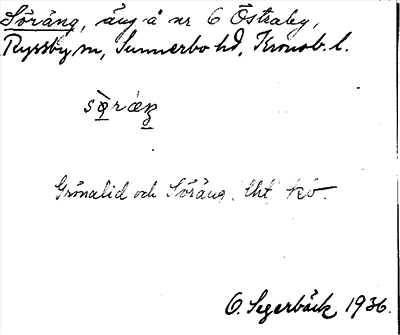 Söräng, äng å nr 6 Östraby,
Ryssby sn, Sunnerbo hd, Kronob. l.
Grönalid och Söräng. Lht kv.
O. Segerbäck 1936.